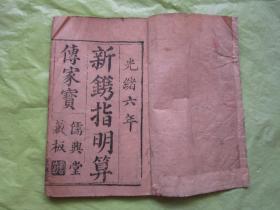 光緒六年
新鐫指明算
傳家寳
儒興堂
藏板